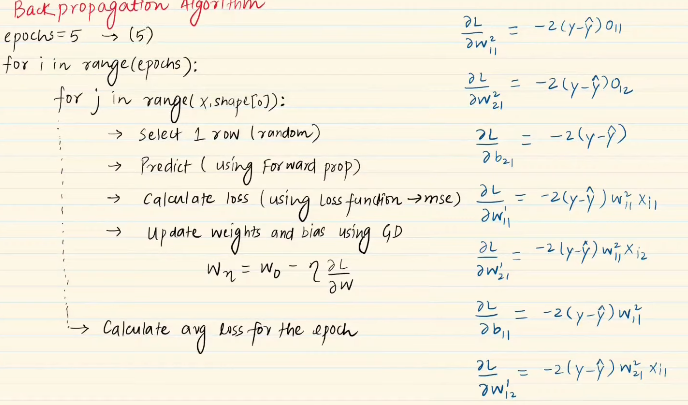 Backpropagation Algorithm
epochs=5 → (5)
for i in range(epochs):
for j in range(x.shape[0]):
→ Select 1 row (random)
→ Predict (using forward prop)
→ Calculate loss (using loss function → mse)
→ Update weights and bias using GD
Wₙ = W₀ - η ∂L/∂W
→ Calculate avg loss for the epoch
∂L/∂w²₁₁ = -2(y-ŷ)O₁₁
∂L/∂w²₂₁ = -2(y-ŷ)O₁₂
∂L/∂b₂₁ = -2(y-ŷ)
∂L/∂w¹₁₁ = -2(y-ŷ) w²₁₁ xᵢ₁
∂L/∂w¹₂₁ = -2(y-ŷ) w²₁₁ xᵢ₂
∂L/∂b₁₁ = -2(y-ŷ) w²₁₁
∂L/∂w¹₁₂ = -2(y-ŷ) w²₂₁ xᵢ₁